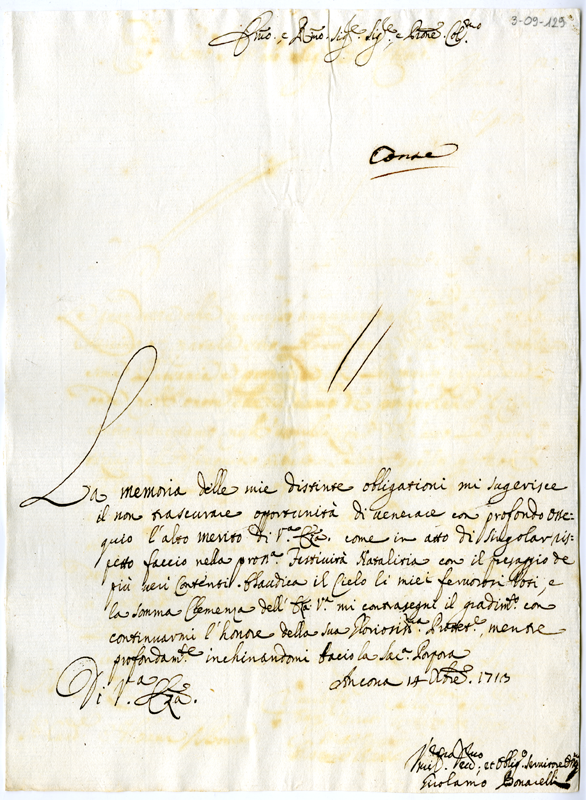 3-09-129
Em̃o. e R̃mo. Sig.re Sig.re e Prone. Col.mo
La memoria delle mie distinte obligationi mi sugerisce
il non trascurare opportunità di venerare con profondo osse-
quio l'alto merito di V.ra Em̃za. come in atto di singolar ris-
petto faccio nella pros.a Festività Natalitia con il presaggio de
più veri Contenti. Esaudisca il Cielo li miei fervorosi Voti, e
la somma Clemenza dell' Em̃za V.ra mi contrasegni il gradim.to con
continuarmi l'honore della sua Protett.e, mentre
profondam.te inchinandomi bacio la Sac.a Porpora
Di V.ra Em̃za.
Ancona 14 Xbre. 1713
et Oblig.o Servitore
Girolamo Bonarelli